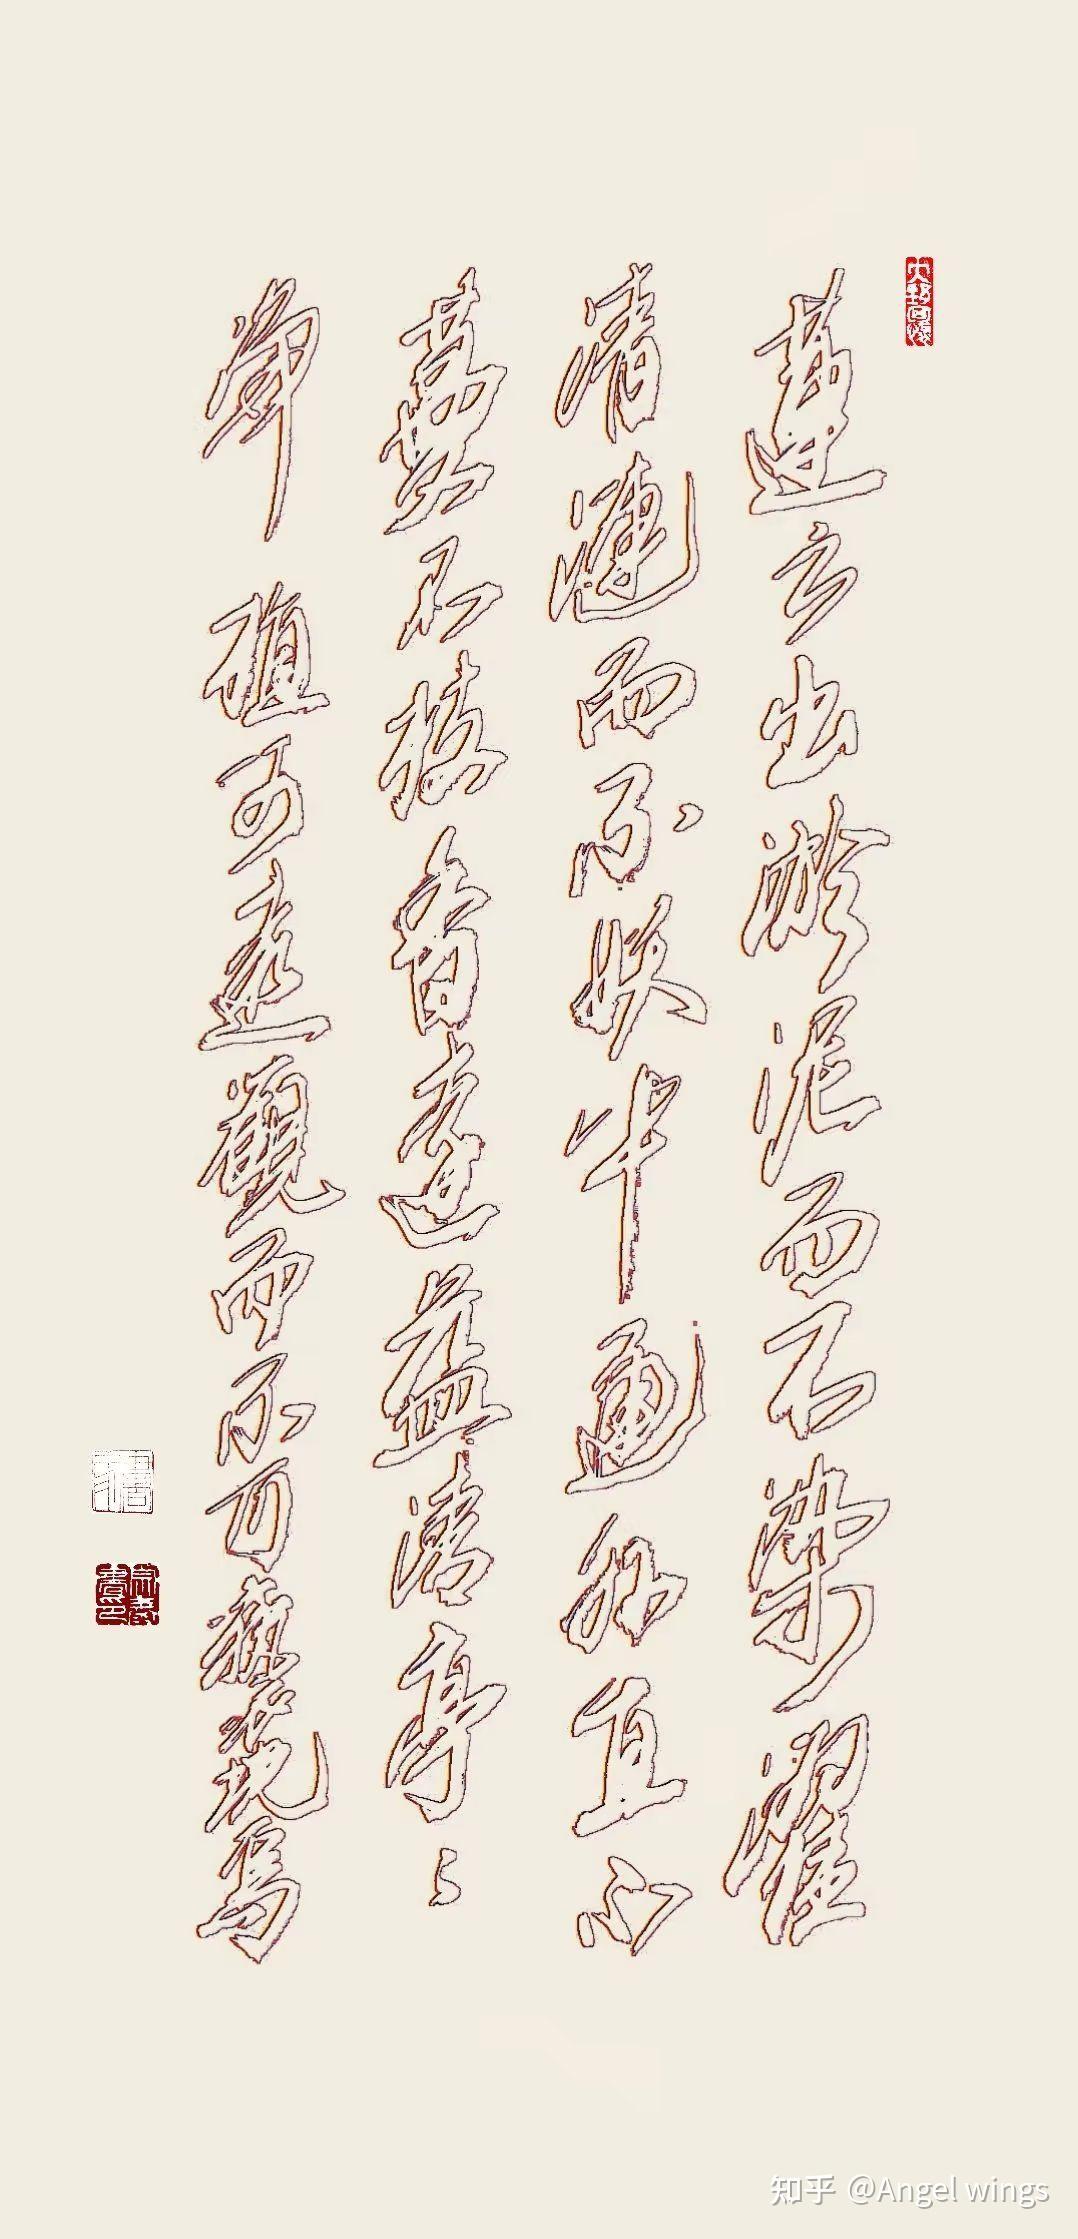 蓮之出淤泥而不染濯
清漣而不妖中通外直不
蔓不枝香遠益清亭々
淨植可遠觀而不可褻玩焉
知乎 @Angel wings